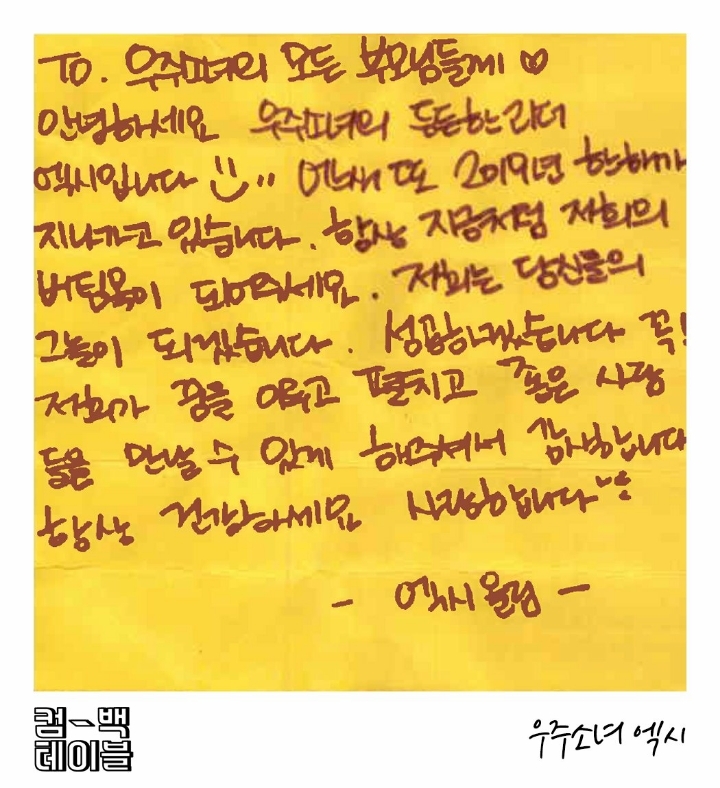 TO. 우주소녀의 모든 부모님들께 ♡
안녕하세요 우주소녀의 든든한 리더
엑시입니다 어느새 또 2019년 한해가
지나가고 있습니다. 항상 지금처럼 저희의
버팀목이 되어주세요. 저희는 당신들의
그늘이 되겠습니다. 성공하겠습니다 꼭!
저희가 꿈을 이루고 펼치고 좋은 사람
들을 만날 수 있게 해주셔서 감사합니다
항상 건강하세요 사랑합니다
- 엑시 올림 -
컴-백
테이블
우주소녀 엑시